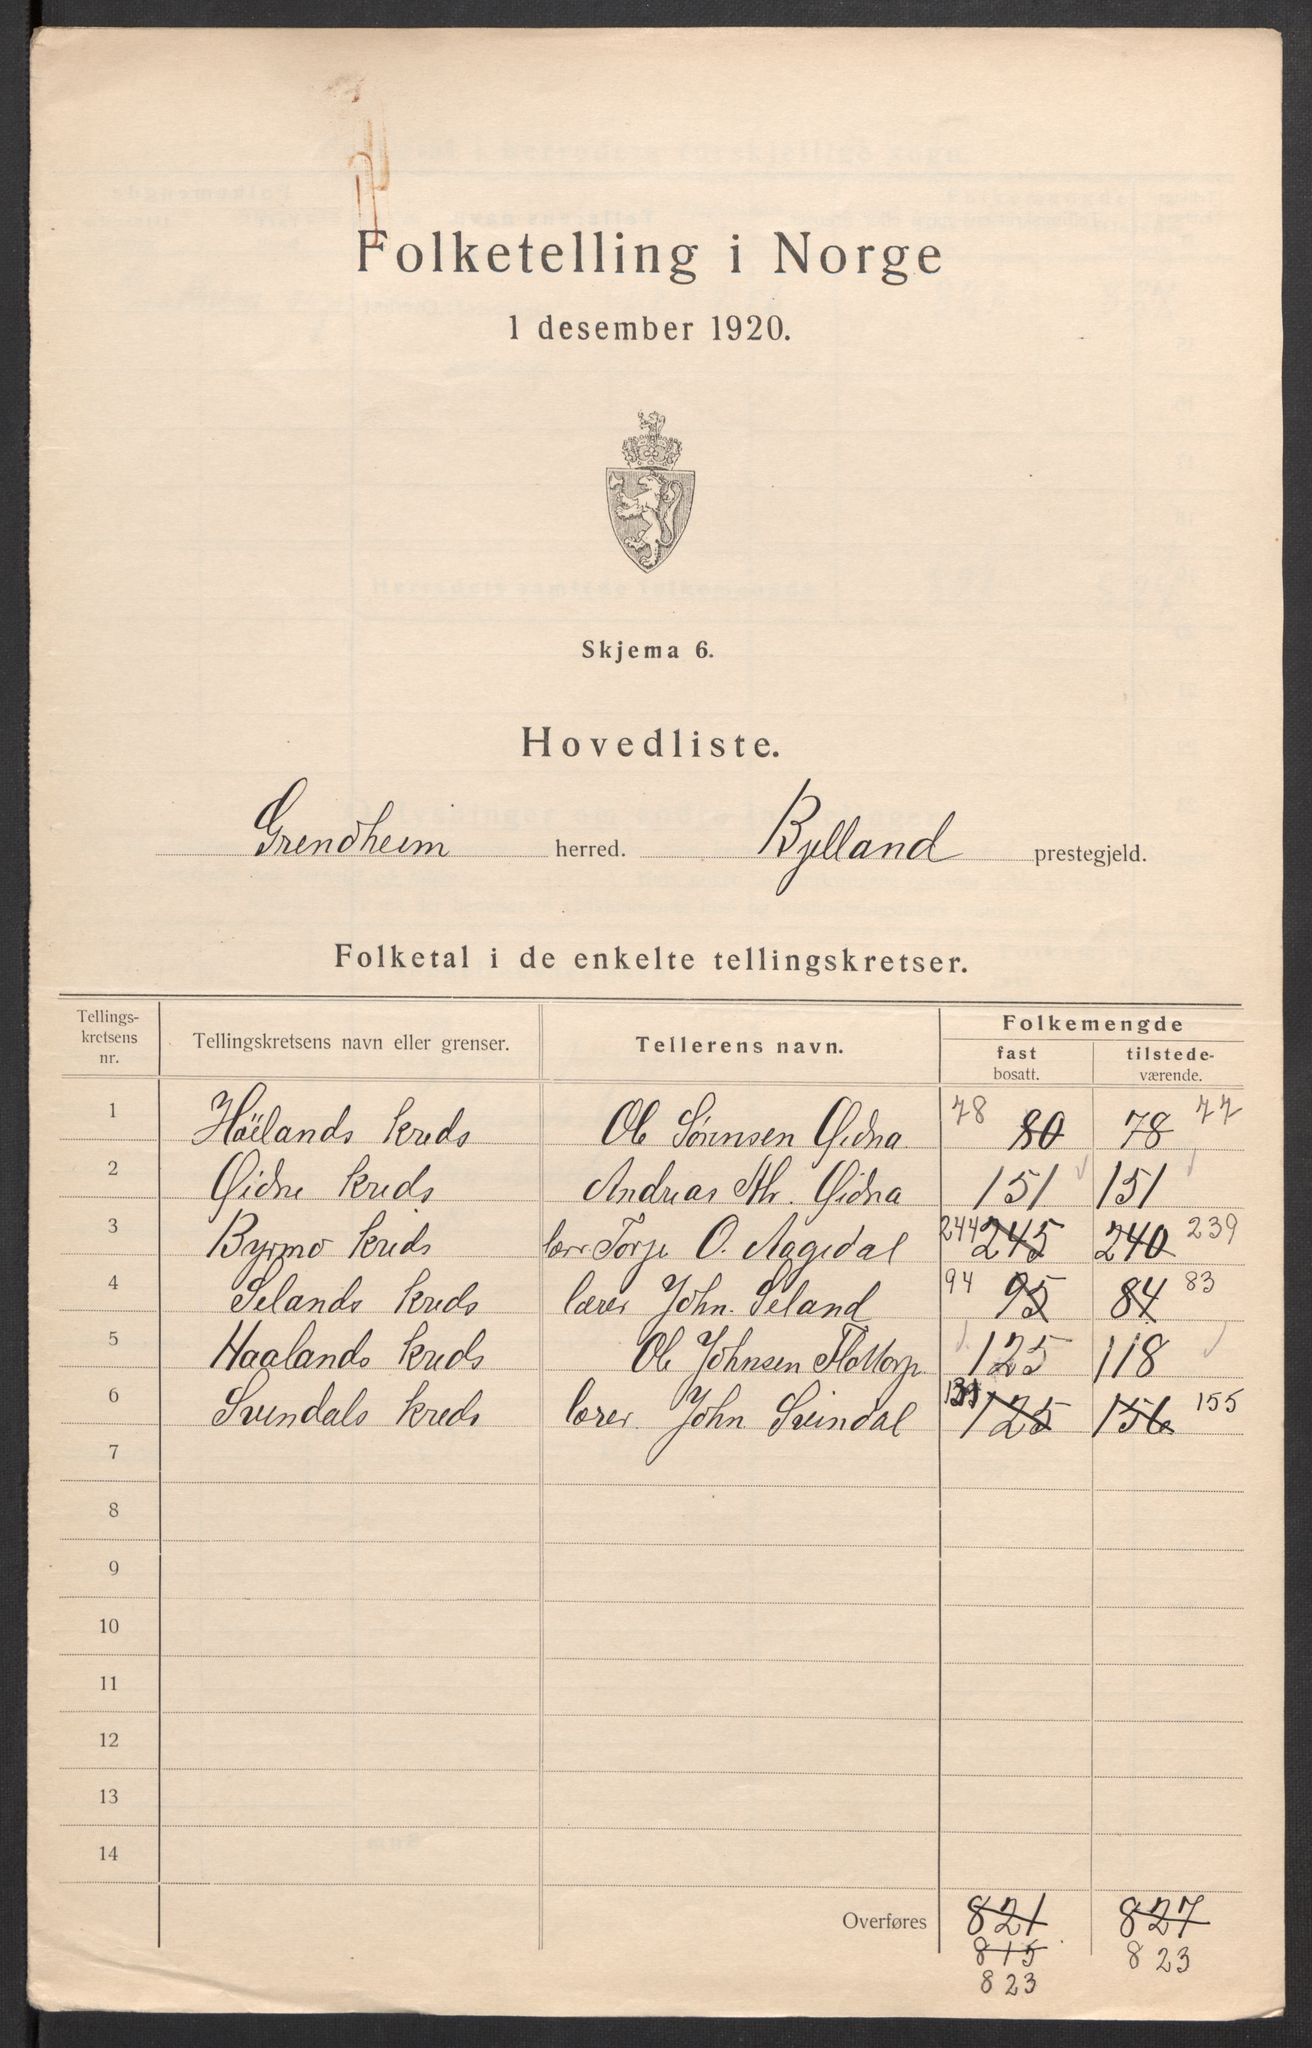 Folketelling i Norge
1 desember 1920.
Skjema 6.
Hovedliste.
Grendheim herred. Bjelland prestegjeld.
Folketal i de enkelte tellingskretser.
Tellings-kretsens nr. Tellingskretsens navn eller grenser. Tellerens navn. Folkemengde
fast bosatt. tilstede-værende.
1 Høilands kreds Ole Sørensen Øidna 78 80 78 77
2 Øidne kreds Andreas Øidna 151 151
3 Byrmo kreds Torje O. Aagedal 244 245 240 239
4 Selands kreds lærer John. Seland 94 95 84 83
5 Haalands kreds Ole Johnsen Flottorp 125 118
6 Svendals kreds lærer John Sveindal 125 156 155
7
8
9
10
11
12
13
14
Overføres 821 827
815 823
823